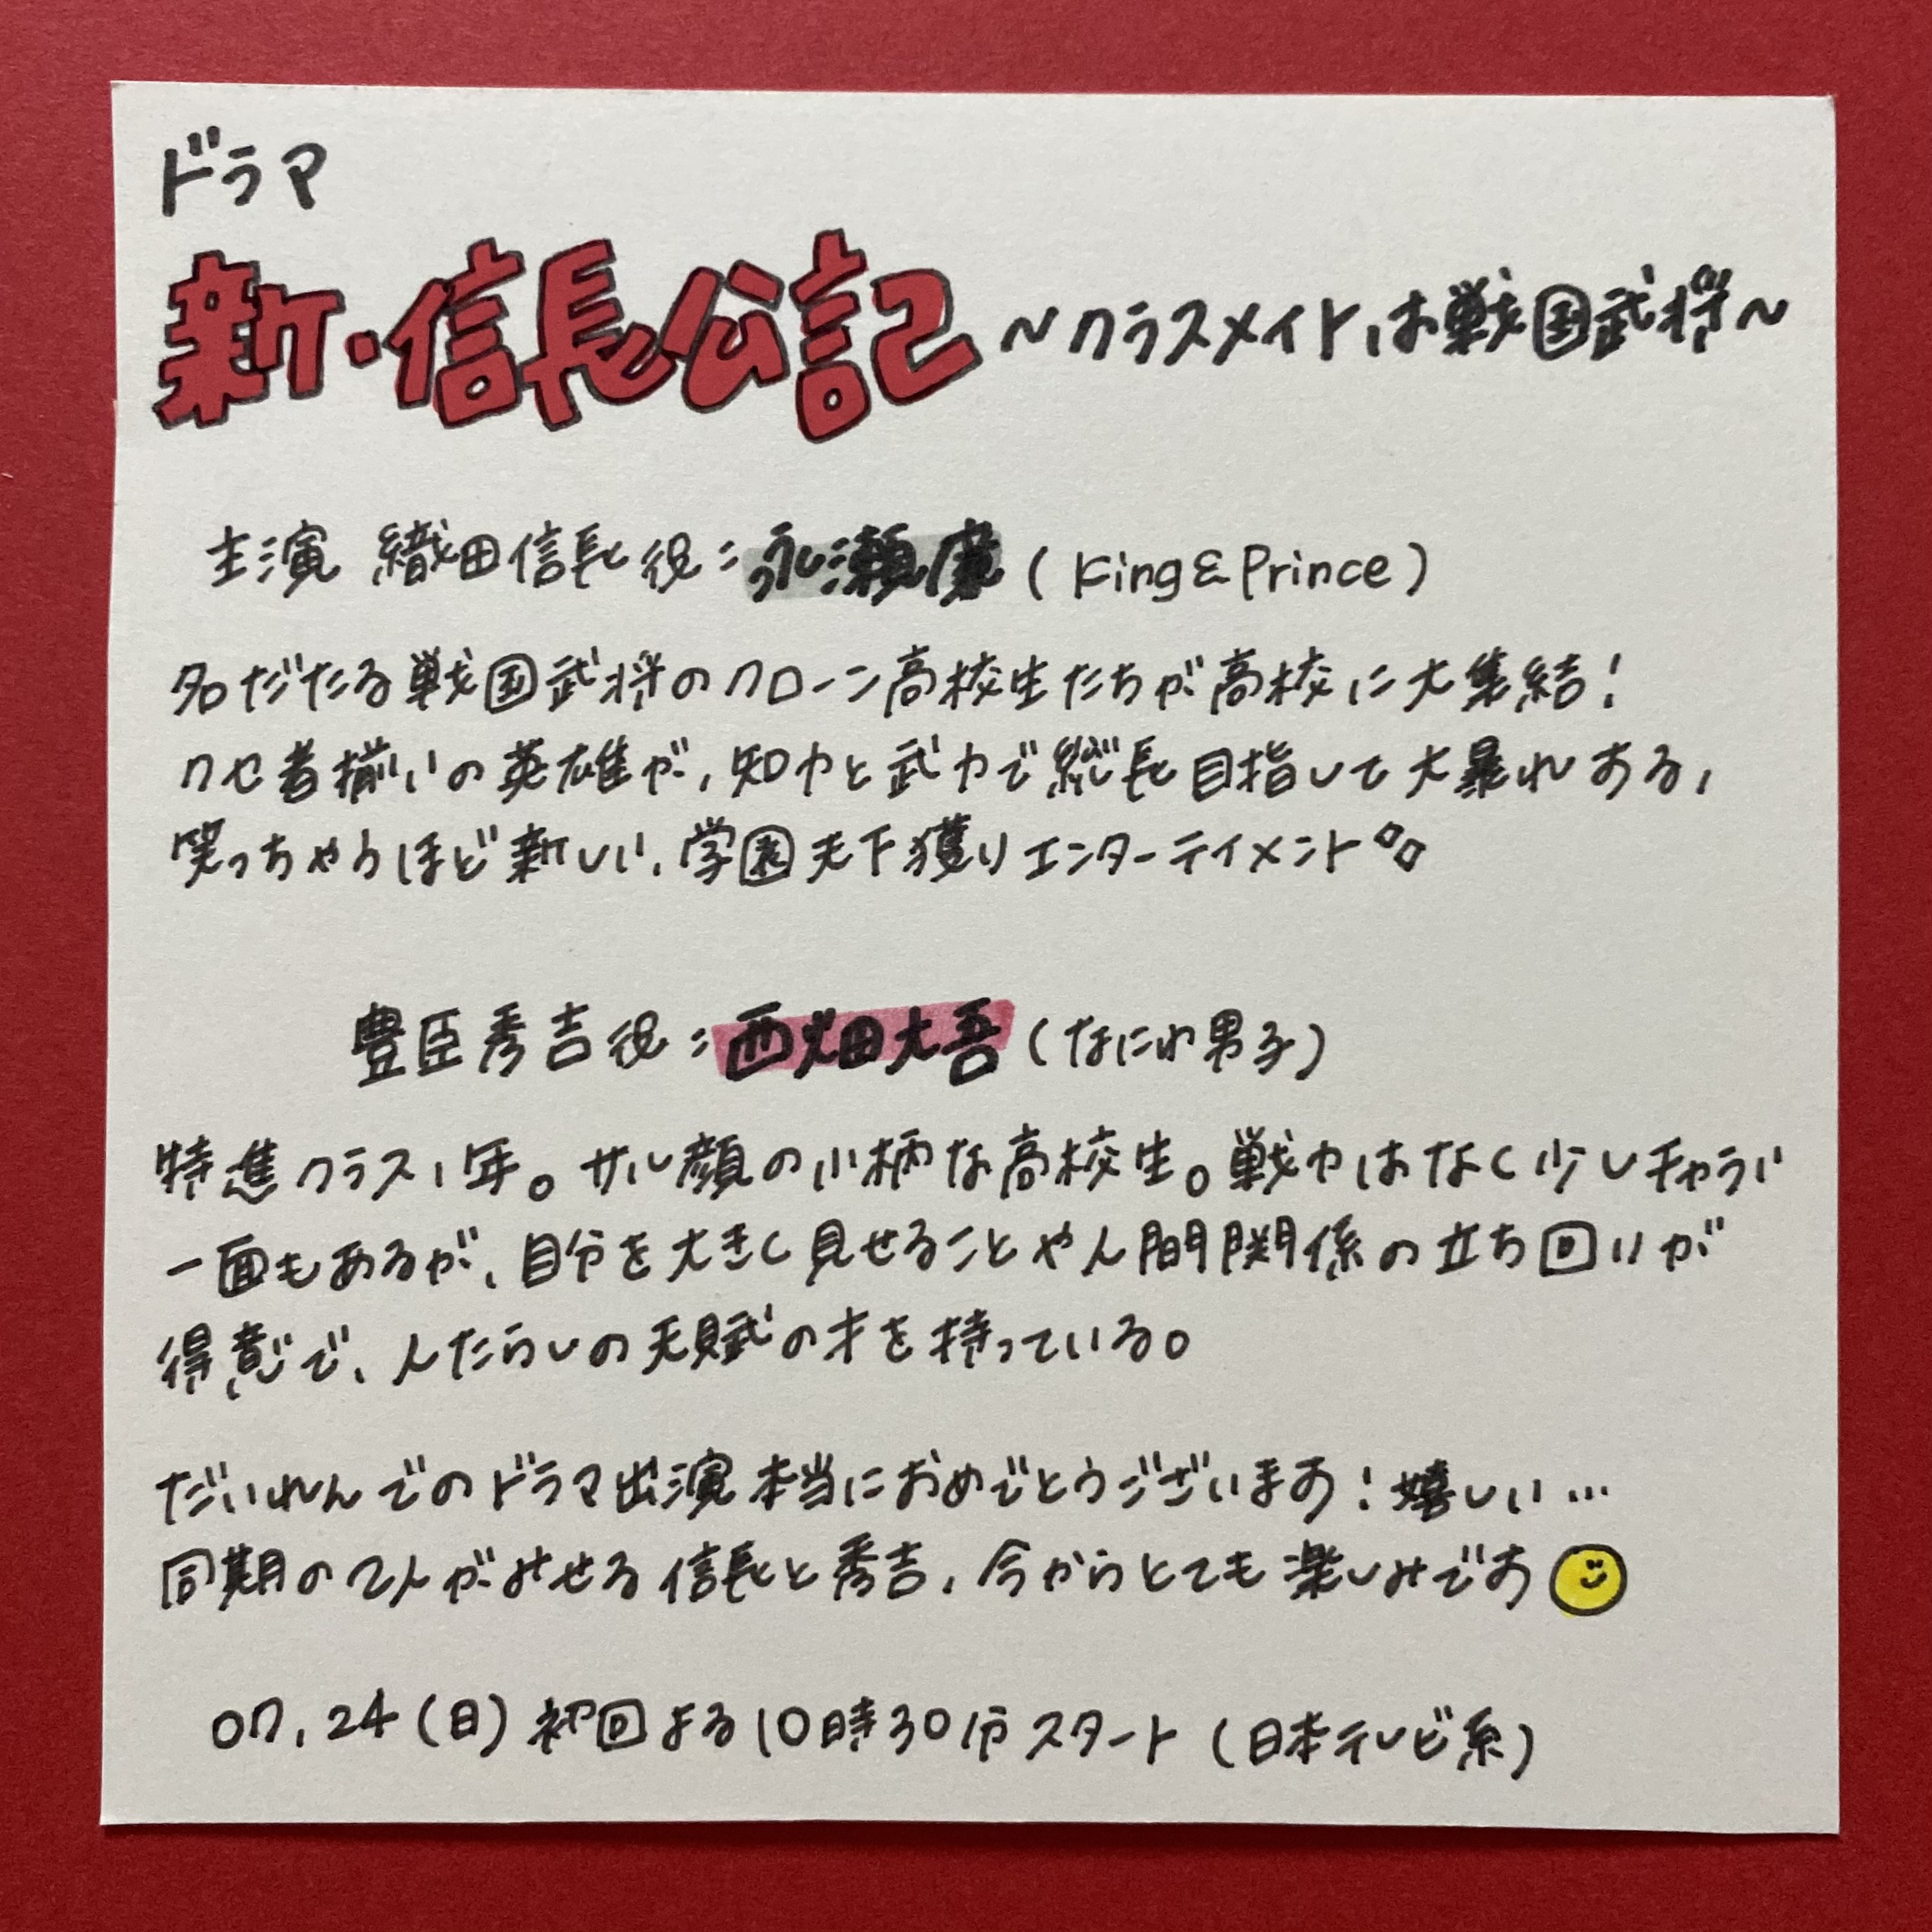 ドラマ
新・信長公記 ～クラスメイトは戦国武将～
主演 織田信長役：永瀬廉（King&Prince）
名だたる戦国武将のクローン高校生たちが高校に大集結！
クセ者揃いの英雄が、知力と武力で総長目指して大暴れする、
笑っちゃうほど新しい、学園天下獲りエンターテイメント
豊臣秀吉役：西畑大吾（なにわ男子）
特進クラス1年。サル顔の小柄な高校生。戦力はなく少しチャラい
一面もあるが、自分を大きく見せることや人間関係の立ち回りが
得意で、人たらしの天賦の才を持っている。
だいれんでのドラマ出演本当におめでとうございます！嬉しい…
同期の2人がみせる信長と秀吉、今からとても楽しみです
07.24（日）初回よる10時30分スタート（日本テレビ系）